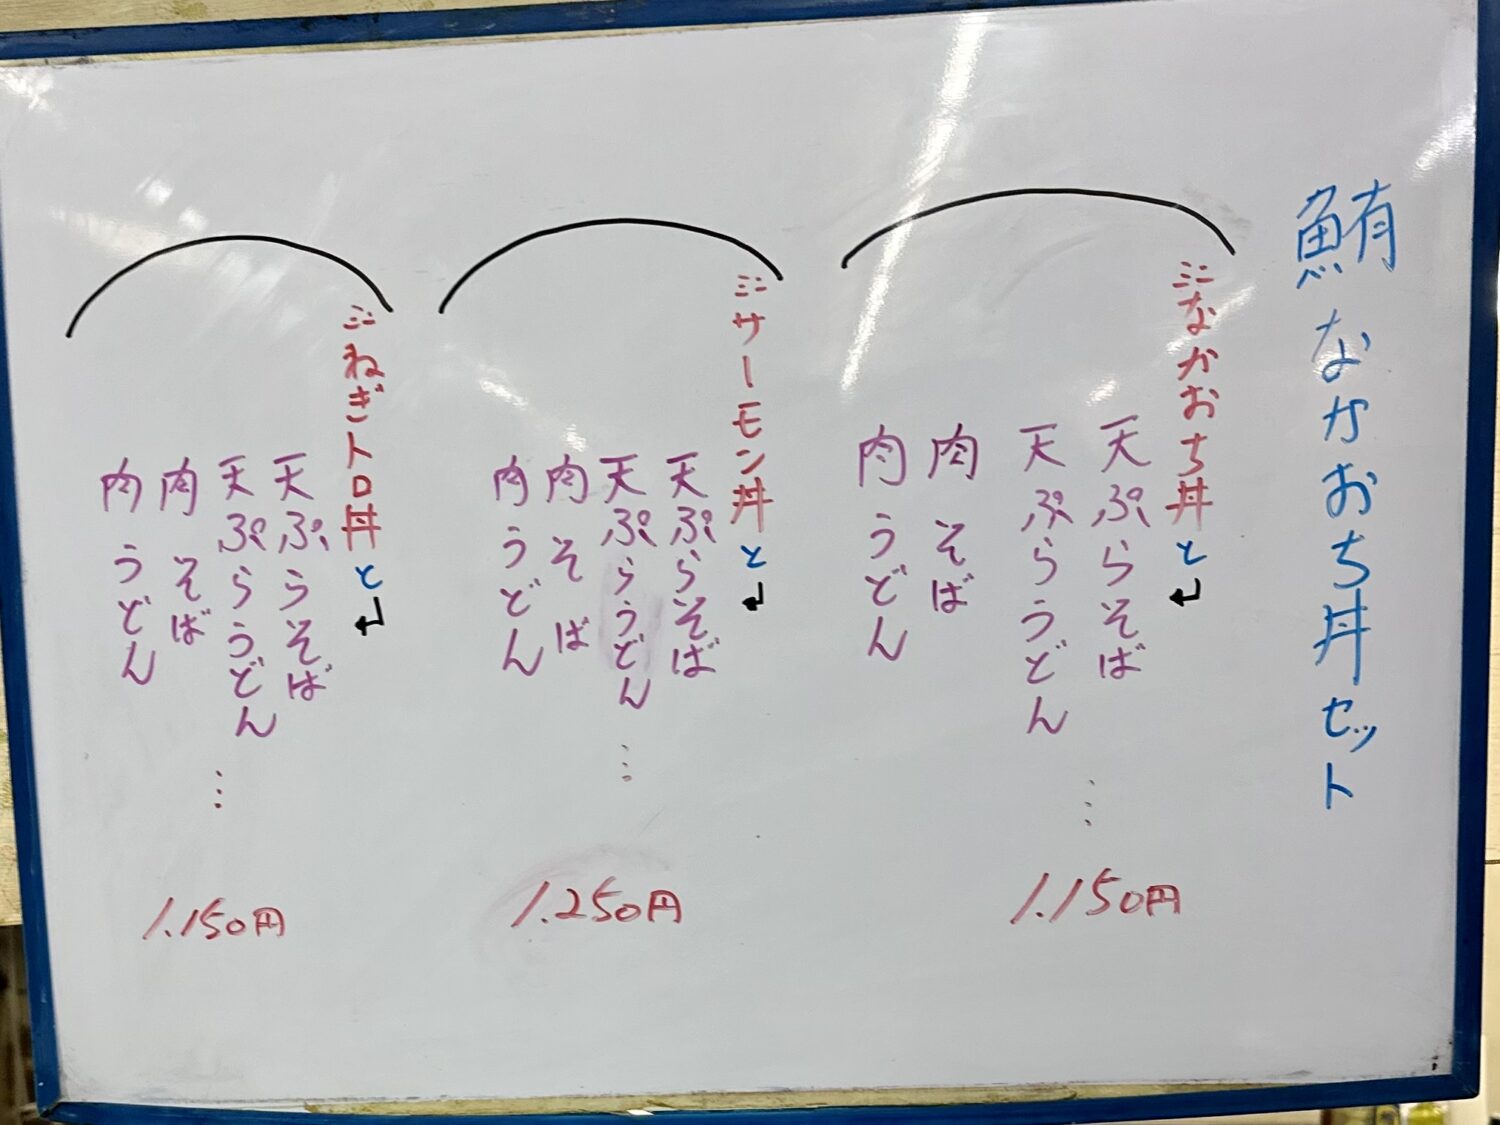 鮪なかおち丼セット
ミニなかおち丼と↵
天ぷらそば
天ぷらうどん
肉そば
肉うどん
…
1.150円
ミニサーモン丼と↵
天ぷらそば
天ぷらうどん
肉そば
肉うどん
…
1.250円
ミニねぎトロ丼と↵
天ぷらそば
天ぷらうどん
肉そば
肉うどん
…
1.150円